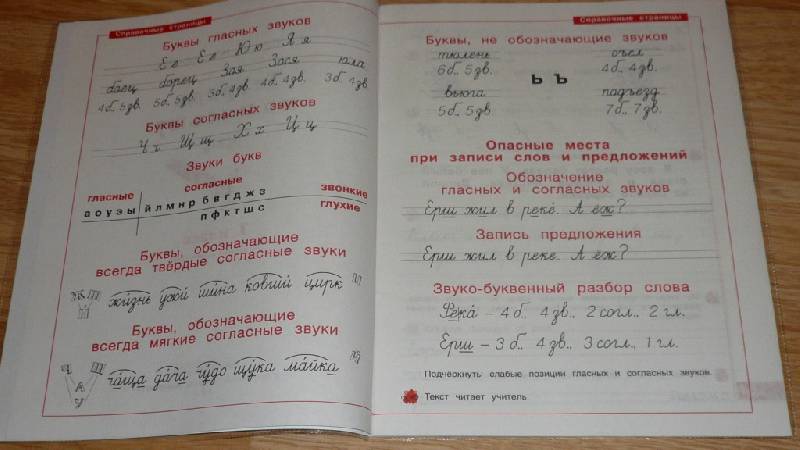 Справочные страницы
Буквы гласных звуков
Ее Ёё Юю Яя
боец борец Зоя Зося юла
4б. 5зв. 5б. 5зв. 3б. 4зв. 4б. 4зв. 3б. 4зв.
Буквы согласных звуков
Чч Щщ Хх Цц
Звуки букв
гласные согласные звонкие
а о у э ы й л м н р б в г д ж з
п ф к т ш с глухие
Буквы, обозначающие
всегда твёрдые согласные звуки
жизнь ужи шина ковший цирк
Буквы, обозначающие
всегда мягкие согласные звуки
чаща дача чудо щука майка
Справочные страницы
Буквы, не обозначающие звуков
тюлень съел
6б. 5зв. ь ъ 4б. 4зв.
вьюга подъезд
5б. 5зв. 7б. 7зв.
Опасные места
при записи слов и предложений
Обозначение
гласных и согласных звуков
Ерши жил в реке. А ёж?
Запись предложения
Ерши жил в реке. А ёж?
Звуко-буквенный разбор слова
Река – 4 б. 4 зв., 2 согл., 2 гл.
Ерш – 3 б., 4 зв., 3 согл., 1 гл.
Подчеркнуть слабые позиции гласных и согласных звуков.
Текст читает учитель.